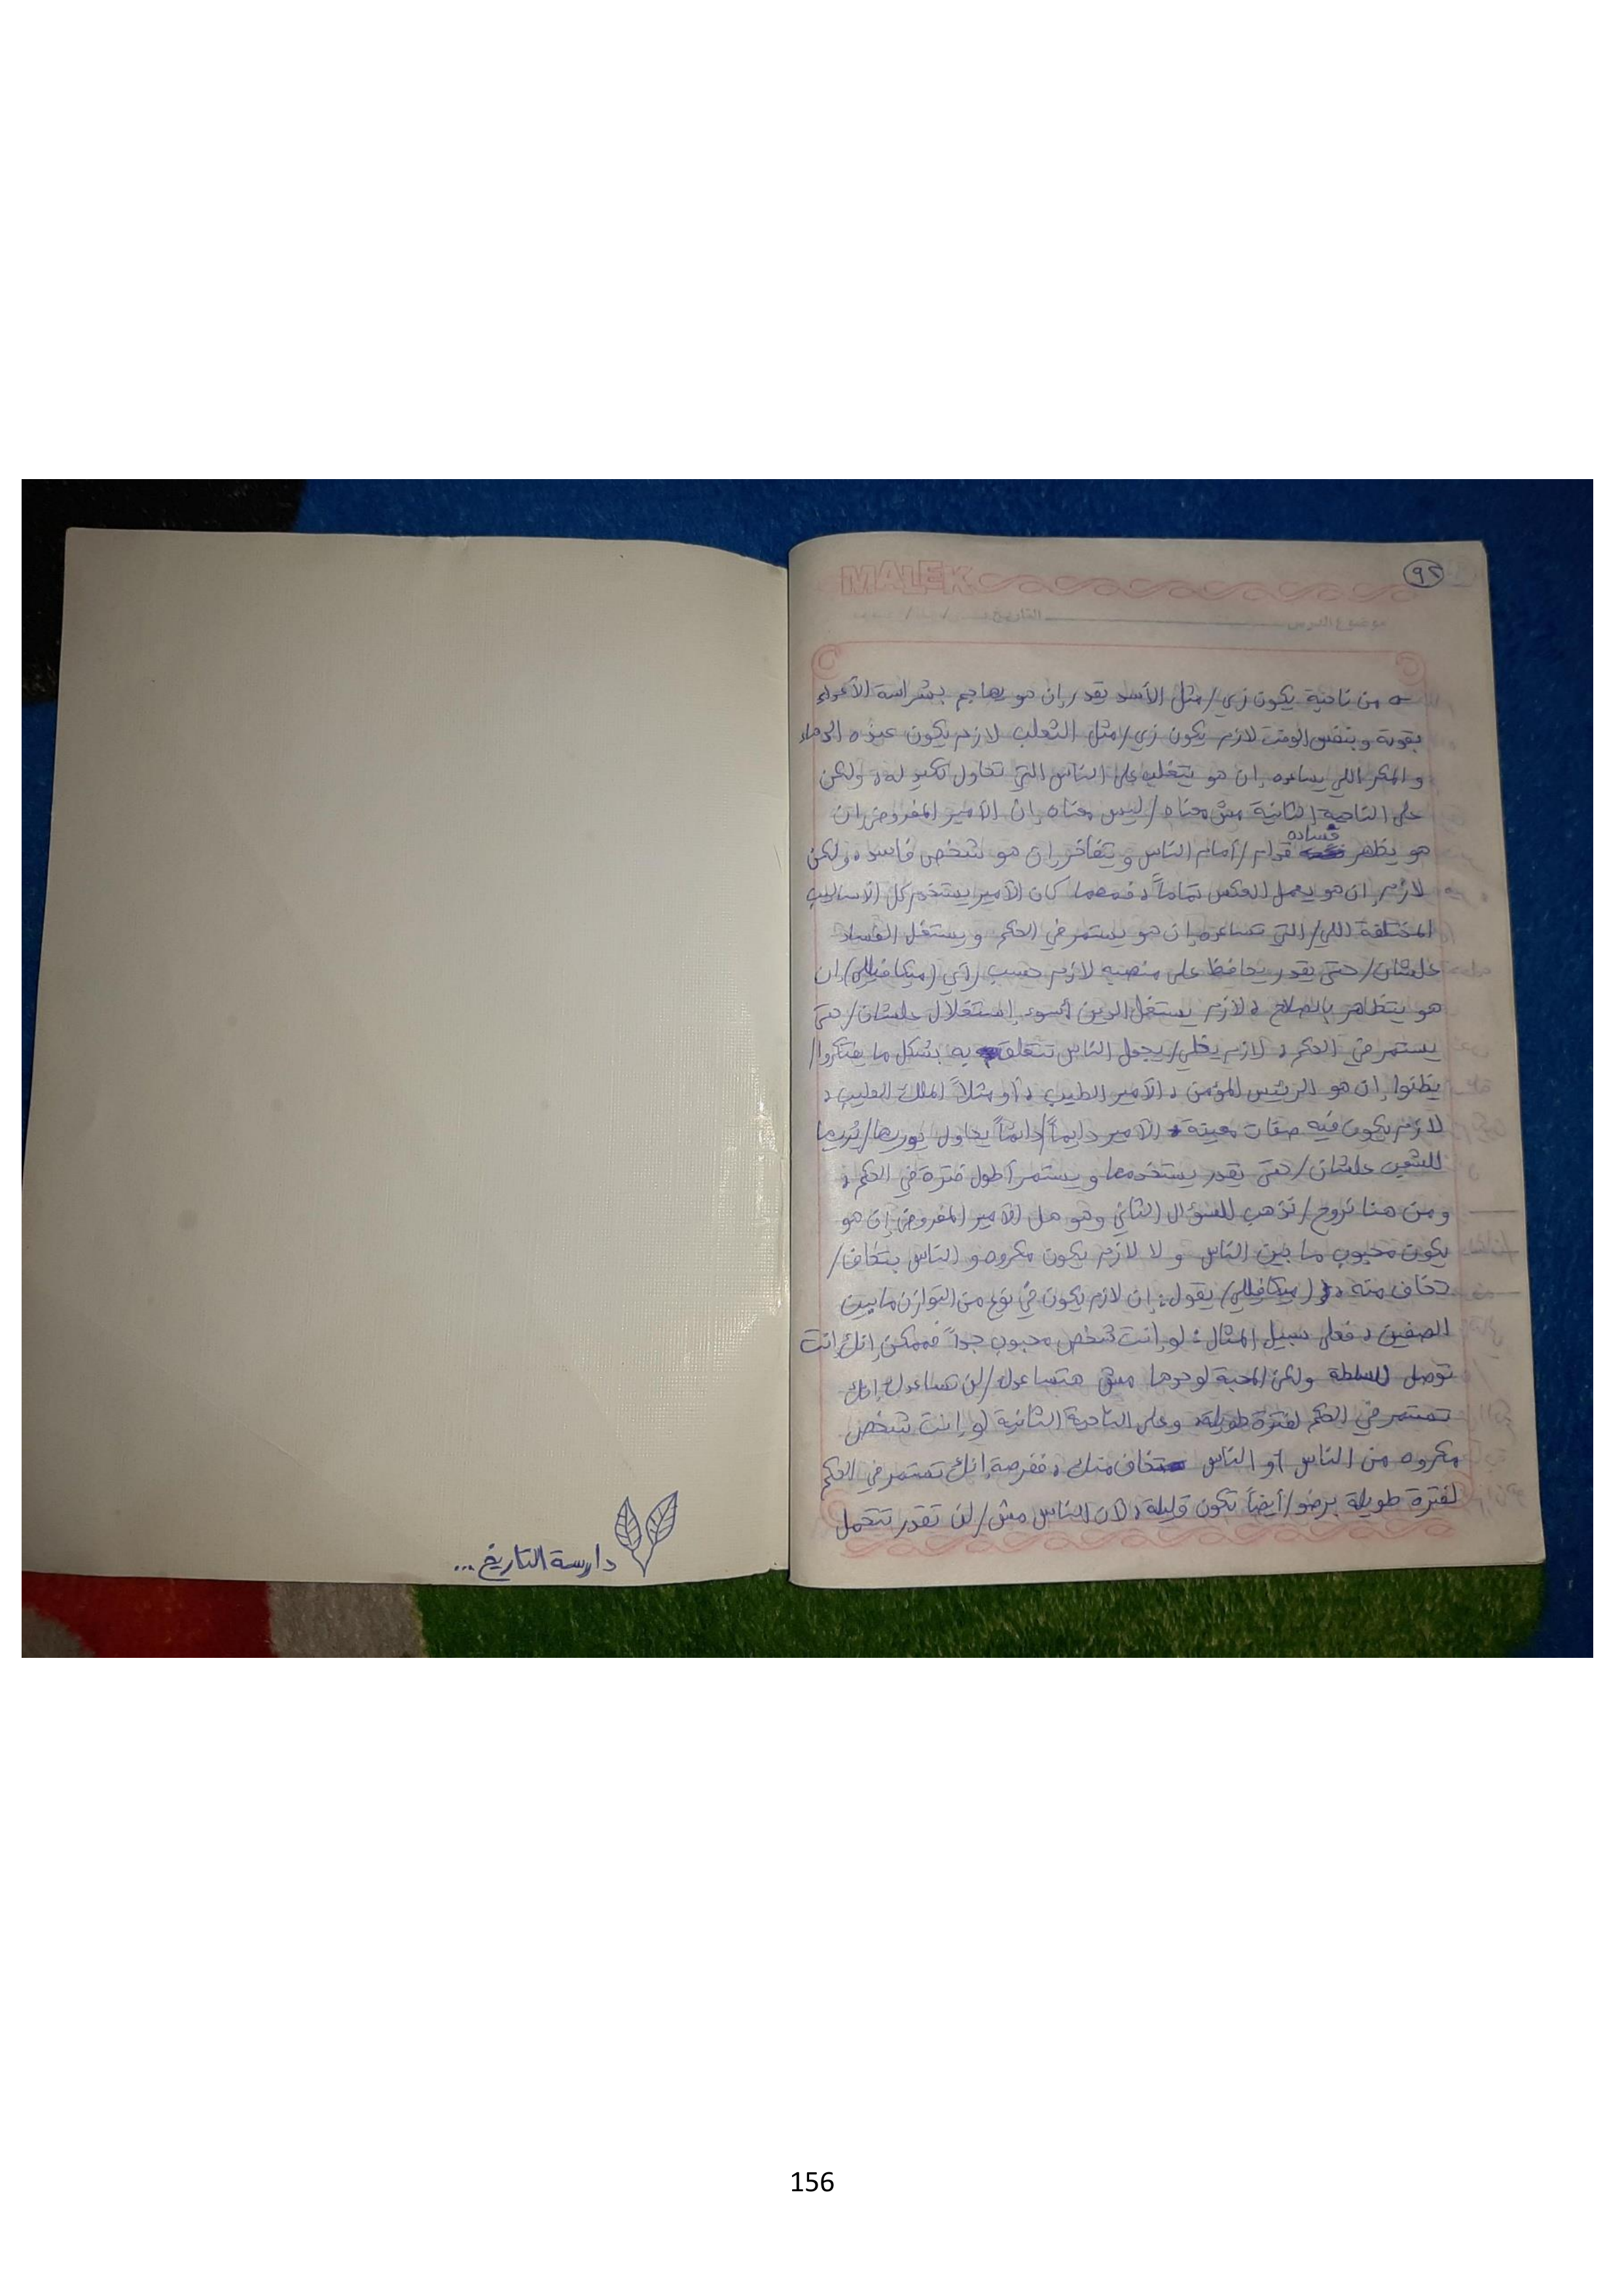 ٩٢
MALEK
موضوع الدرس التاريخ / /
من ناحية يكون زي/مثل الأسد يقدر إن هو يهاجم بشراسة الأعداء
بقوية وبنفس الوقت لازم يكون زي/مثل الثعلب لازم يكون عنده الدهاء
والمكر اللي يساعده إن هو يتغلب على الناس التي تحاول تكيد له، ولكن
على الناحية الثانية مش معناه/ليس معناه إن الأمير المفروض إن
هو يظهر فساده قدام/أمام الناس ويتفاخر إن هو شخص فاسد، ولكن
لازم إن هو يعمل العكس تماماً، فمهما كان الأمير يستخدم كل الأساليب
المختلفة اللي/التي تساعده إن هو يستمر في الحكم ويستغل الفساد
علشان/حتى يقدر يحافظ على منصبه لازم حسب رأي (ميكافيللي) إن
هو يتظاهر بالصلاح، لازم يستغل الدين أسوء إستغلال علشان/حتى
يستمر في الحكم، لازم يخلي/يجعل الناس تتعلق به بشكل ما يفتكروا/
يظنوا إن هو الرئيس المؤمن، الأمير الطيب، أو مثلاً الملك الطيب،
لازم يكون فيه صفات معينة الأمير دايماً/دائماً يحاول يوريها/يُريها
للشعب علشان/حتى يقدر يستخدمها ويستمر أطول فترة في الحكم،
ومن هنا نروح/نذهب للسؤال الثاني وهو هل الأمير المفروض إن هو
يكون محبوب ما بين الناس ولا لازم يكون مكروه والناس بتخاف/
تخاف منه، (ميكافيللي) يقول: إن لازم يكون في نوع من التوازن ما بين
الصفين، فعلى سبيل المثال: لو إنت شخص محبوب جداً فممكن إنك إنت
توصل للسلطة ولكن المحبة لوحدها مش هتساعدك/لن تساعدك إنك
تستمر في الحكم لفترة طويلة، وعلى الناحية الثانية لو إنت شخص
مكروه من الناس أو الناس تخاف منك، ففرصة إنك تستمر في الحكم
لفترة طويلة برضو/أيضاً تكون قليلة، لأن الناس مش/لن تقدر تتحمل
دارسة التاريخ...
156